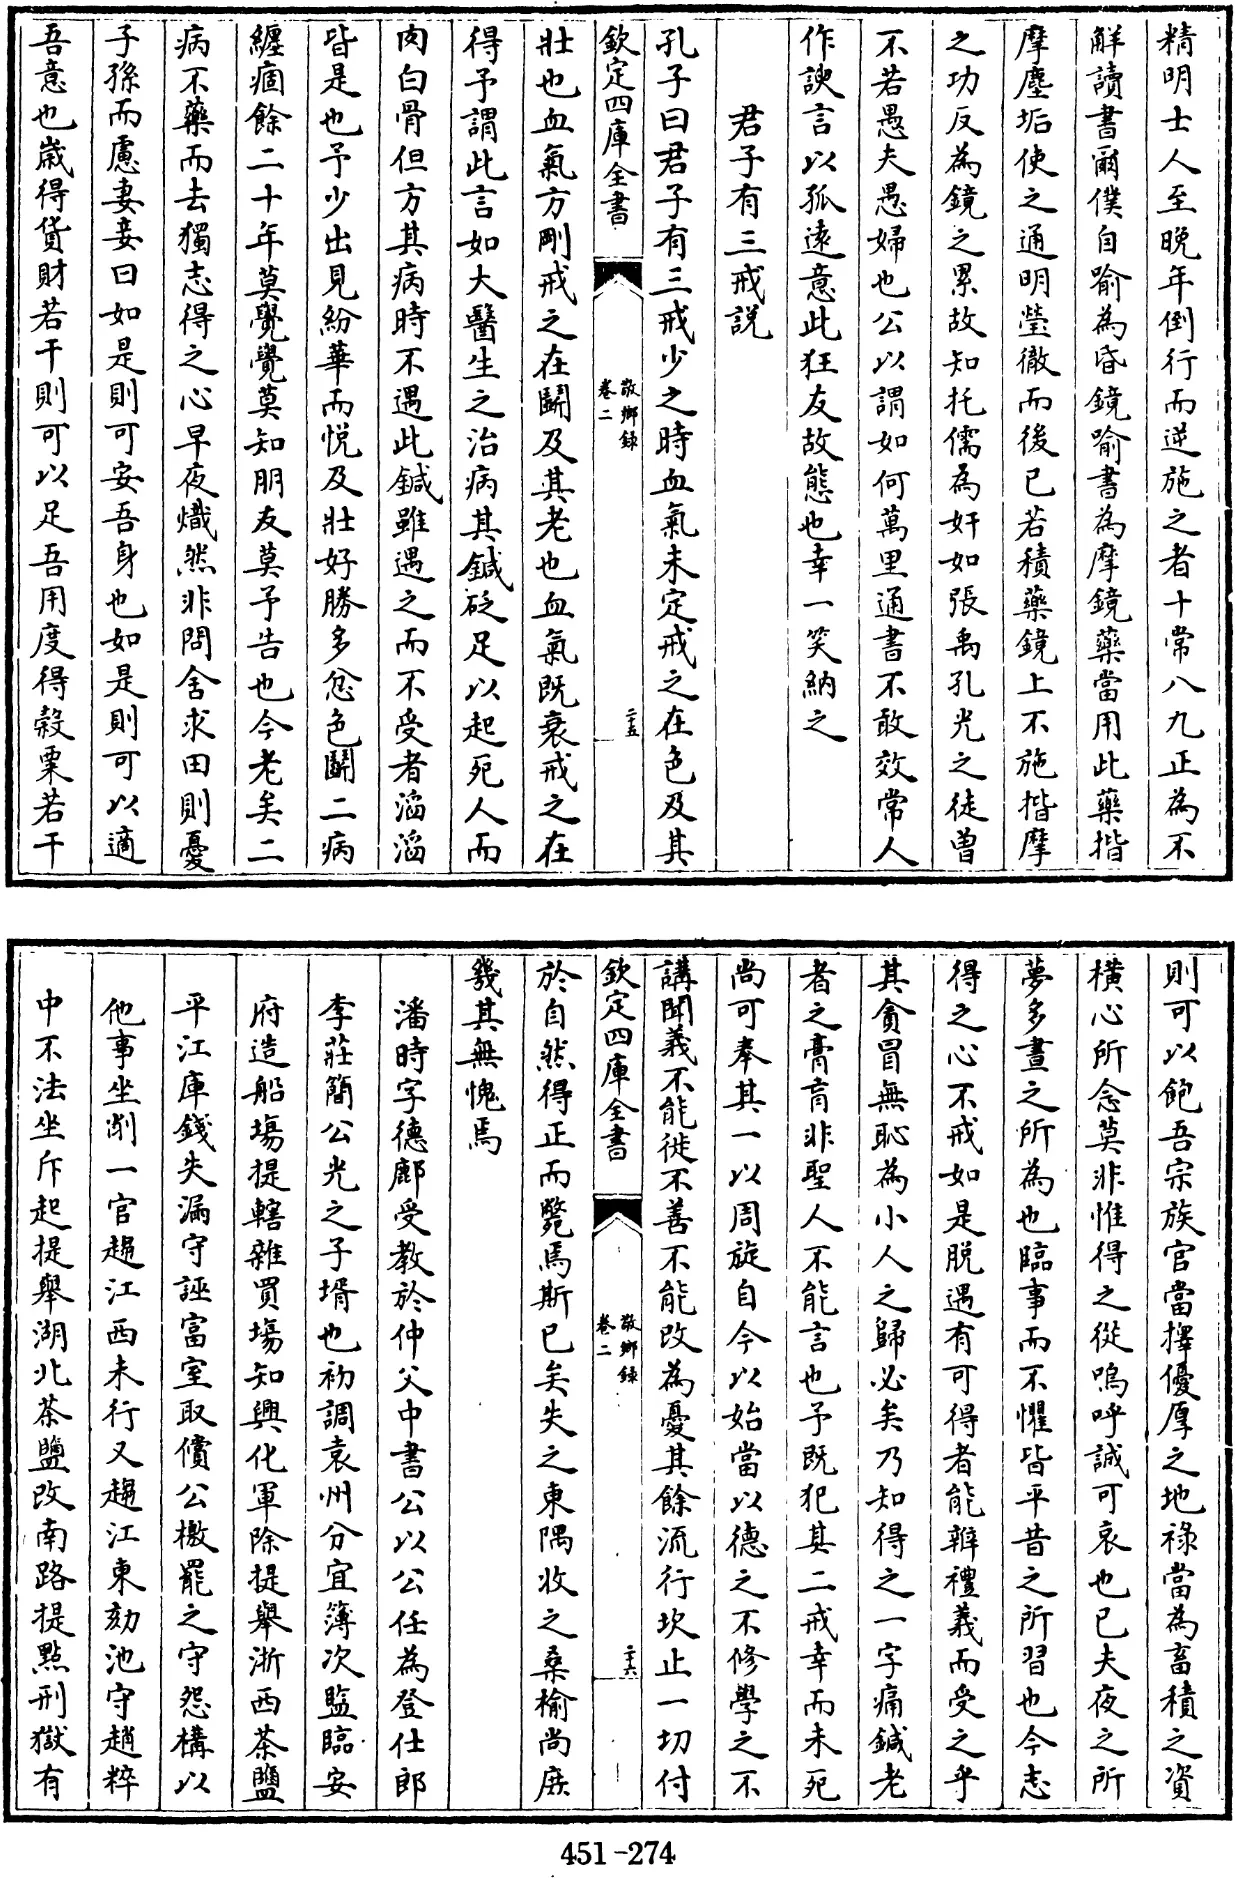 精明士人至晚年倒行而逆施之者十常八九正為不
解讀書爾僕自喻為昏鏡喻書為摩鏡藥當用此藥揩
摩塵垢使之通明瑩徹而後已若積藥鏡上不施揩摩
之功反為鏡之累故知托儒為奸如張禹孔光之徒曽
不若愚夫愚婦也公以謂如何萬里通書不敢效常人
作諛言以孤遠意此狂友故態也幸一笑納之
君子有三戒説
孔子曰君子有三戒少之時血氣未定戒之在色及其
欽定四庫全書
敬鄉録
卷二
二十五
壯也血氣方剛戒之在鬭及其老也血氣既衰戒之在
得予謂此言如大醫生之治病其鍼砭足以起死人而
肉白骨但方其病時不遇此鍼雖遇之而不受者滔滔
皆是也予少出見紛華而悦及壯好勝多忿色鬭二病
纏痼餘二十年莫覺覺莫知朋友莫予告也今老矣二
病不藥而去獨志得之心早夜熾然非問舍求田則憂
子孫而慮妻妾曰如是則可安吾身也如是則可以適
吾意也歲得貨財若干則可以足吾用度得穀粟若干
則可以飽吾宗族官當擇優厚之地禄當為畜積之資
横心所念莫非惟得之從嗚呼誠可哀也已夫夜之所
夢多晝之所為也臨事而不懼皆平昔之所習也今志
得之心不戒如是脱遇有可得者能辨禮義而受之乎
其貪冒無恥為小人之歸必矣乃知得之一字痛鍼老
者之膏肓非聖人不能言也予既犯其二戒幸而未死
尚可奉其一以周旋自今以始當以德之不修學之不
講聞義不能徙不善不能改為憂其餘流行坎止一切付
欽定四庫全書
敬鄉録
卷二
二十六
於自然得正而斃焉斯已矣失之東隅收之桑榆尚庶
幾其無愧焉
潘時字德鄜受教於仲父中書公以公任為登仕郎
李莊簡公光之子壻也初調袁州分宜簿次監臨安
府造船塲提轄雜買塲知興化軍除提舉浙西茶鹽
平江庫錢失漏守誣富室取償公檄罷之守怨構以
他事坐削一官趨江西未行又趨江東劾池守趙粹
中不法坐斥起提舉湖北茶鹽改南路提㸃刑獄有
451-274